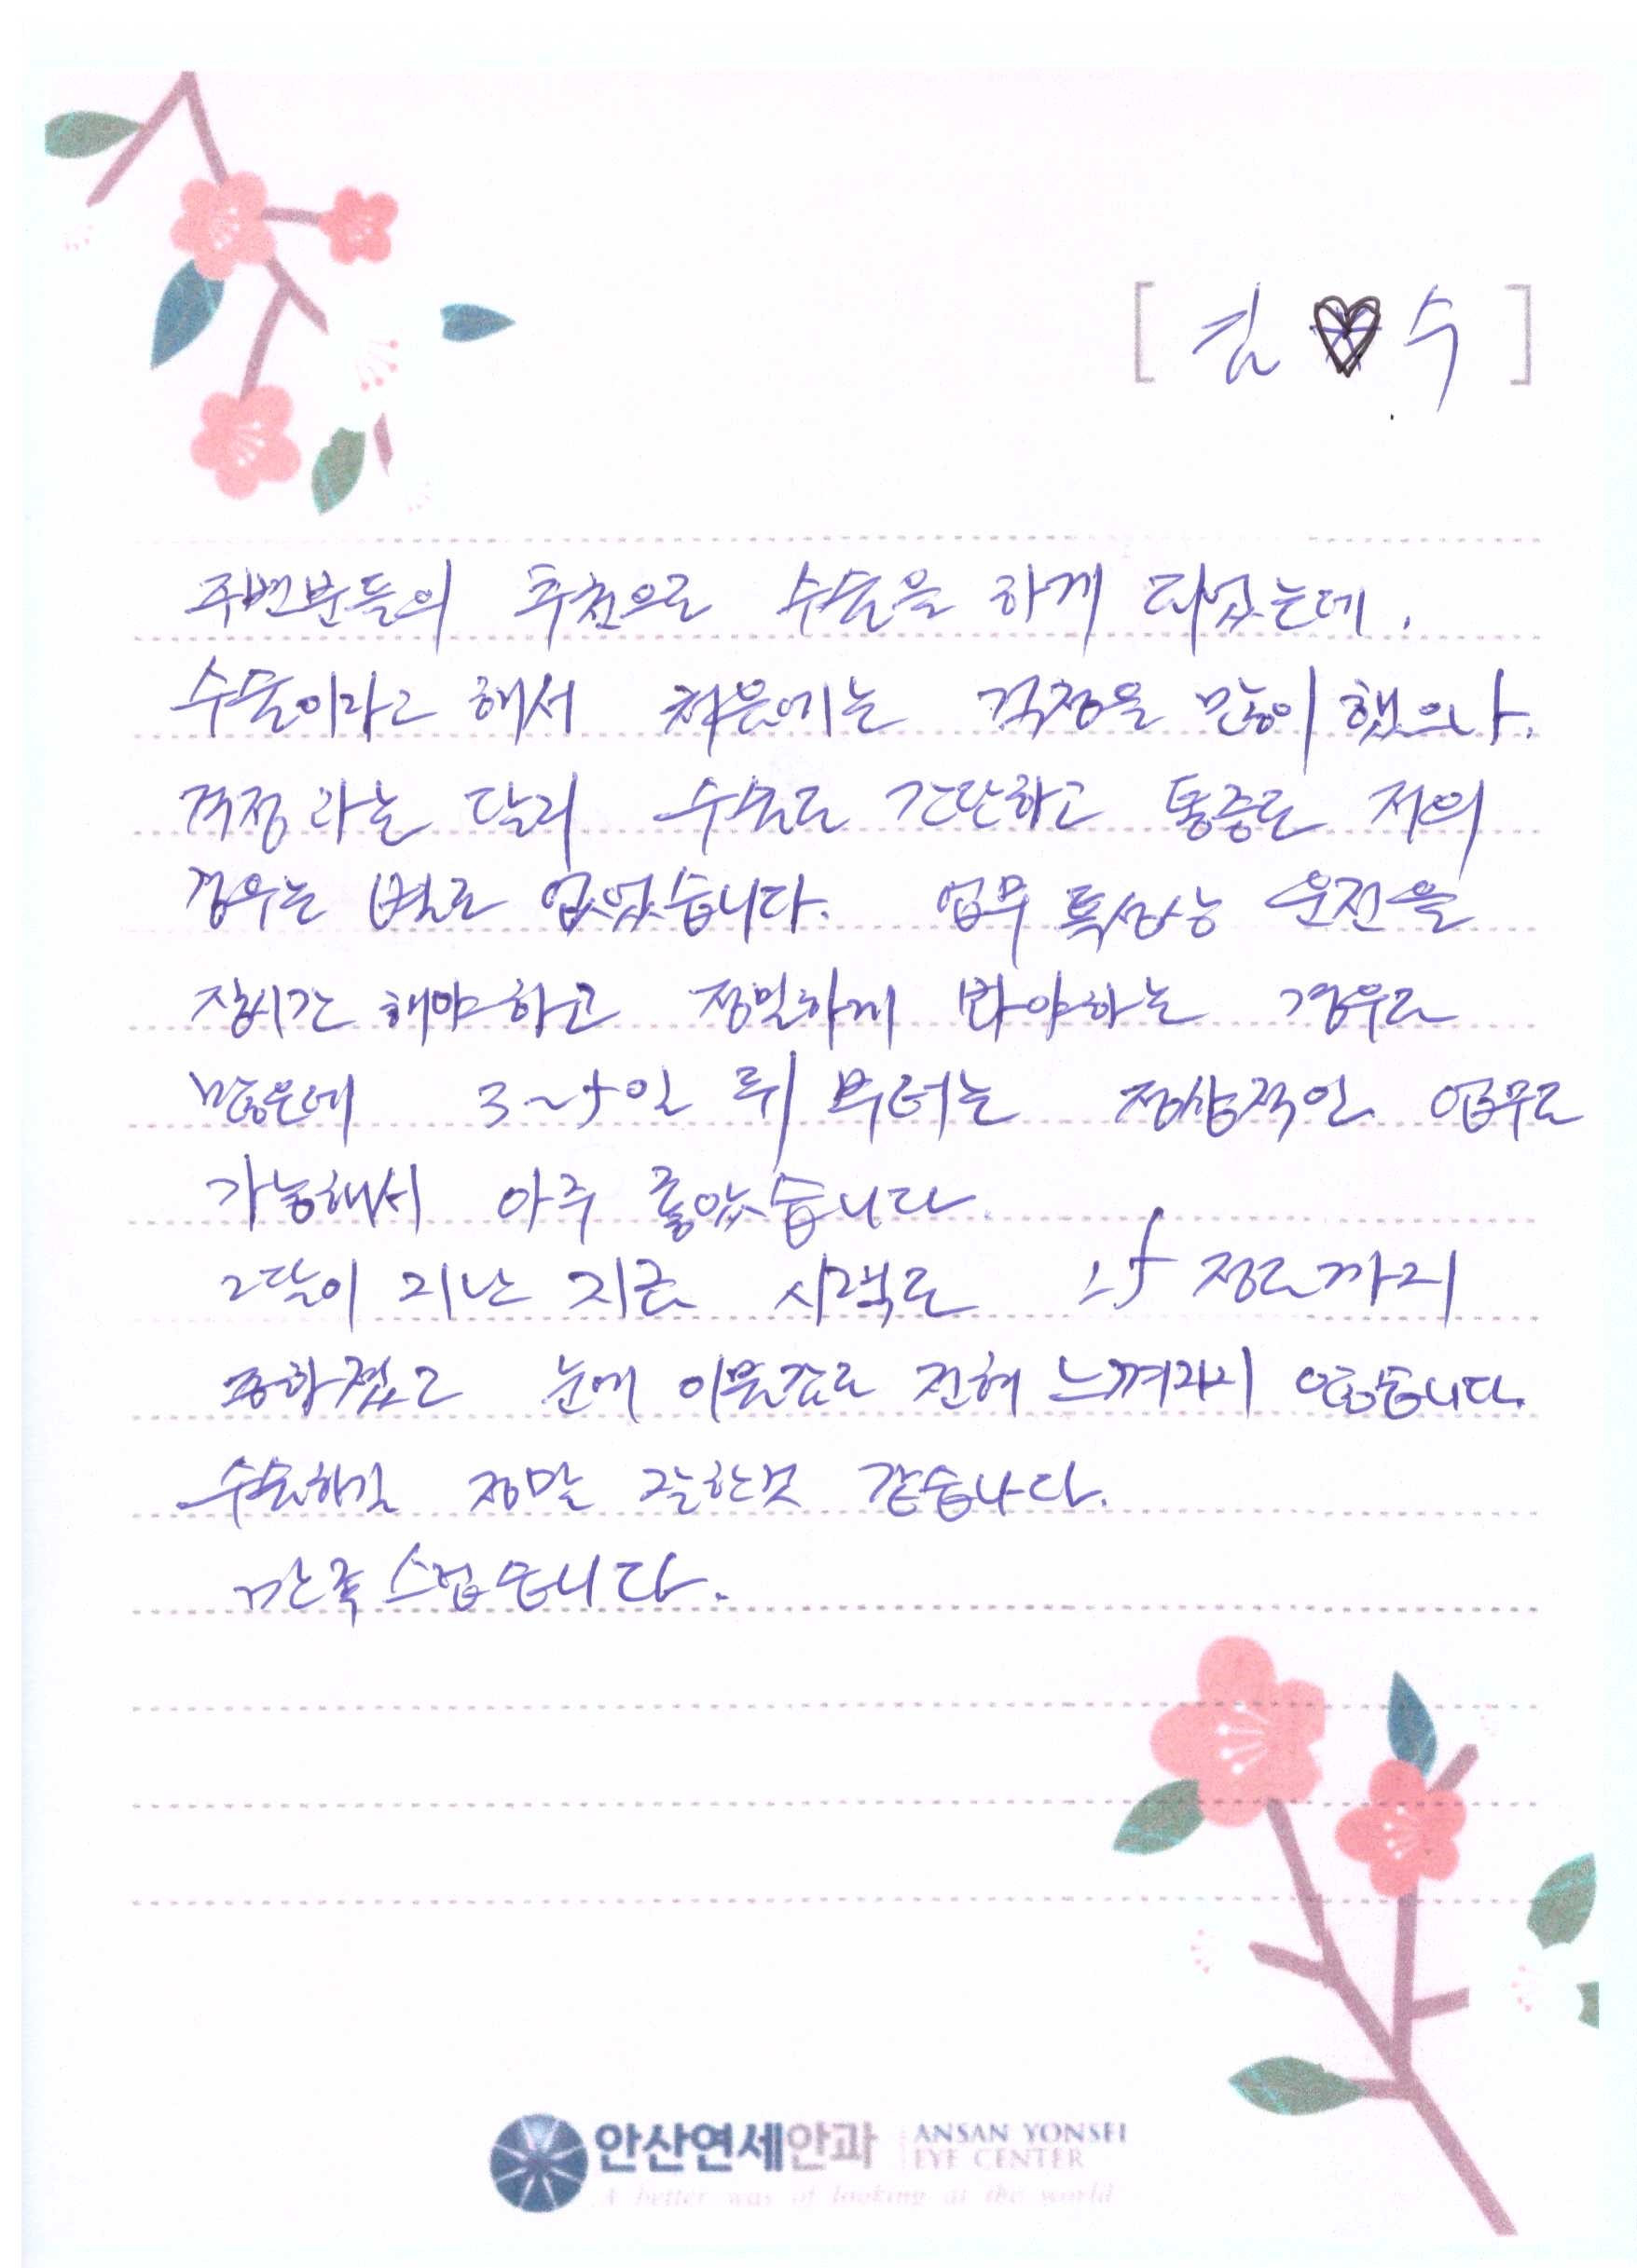 [ 김 수 ]
주변분들의 추천으로 수술을 하게 되었는데.
수술이라고 해서 처음에는 걱정을 많이 했으나.
걱정과는 달리 수술도 간단하고 통증도 저의
경우는 별로 없었습니다. 업무 특성상 운전을
장시간 해야하고 정밀하게 봐야하는 경우도
많은데 3~5일 뒤 부터는 정상적인 업무도
가능해서 아주 좋았습니다
2달이 지난 지금 시력도 1.5 정도까지
좋아졌고 눈에 이물감도 전혀 느껴지지 않습니다.
수술하길 정말 잘한것 같습니다.
만족스럽습니다.
안산연세안과 ANSAN YONSEI
EYE CENTER
A better way of looking at the world